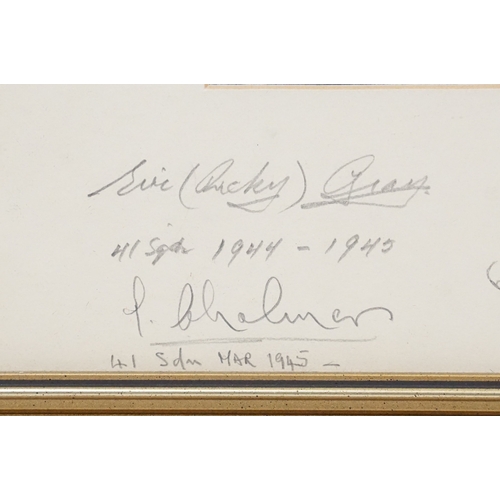 Eric (Ricky) Gray.
41 Sqdn 1944 - 1945
J. Chalmers
41 Sdn MAR 1945 -